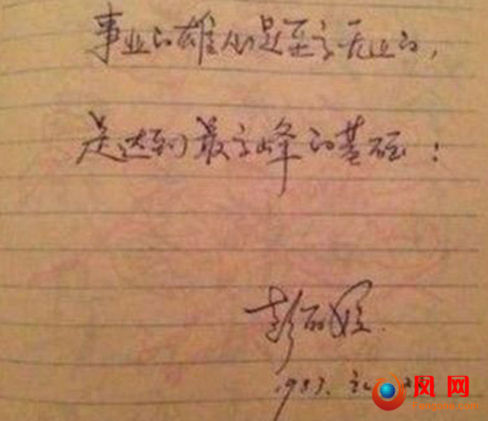 事业的雄心是至高无上的，
是达到最高峰的基础：
彭丽媛
1983.
凤网